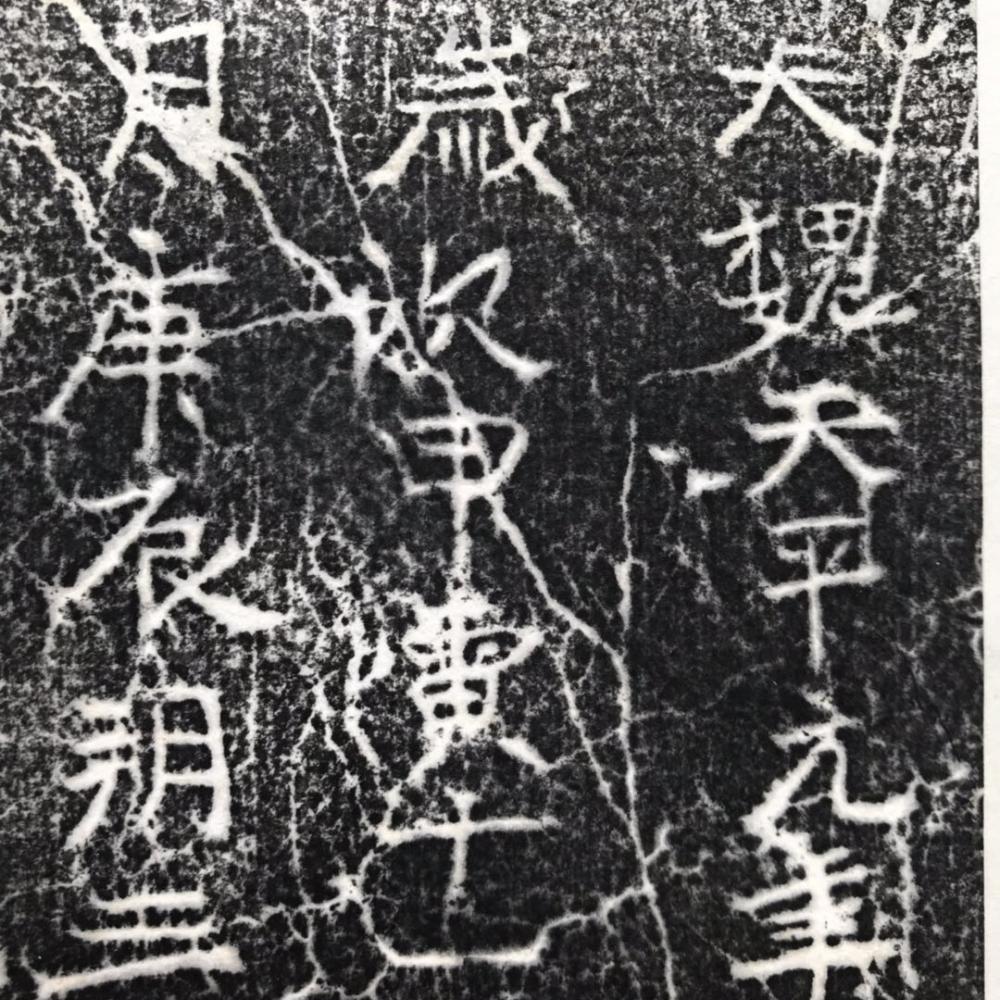 大魏天平元年
歲次甲寅十一
月庚辰朔三